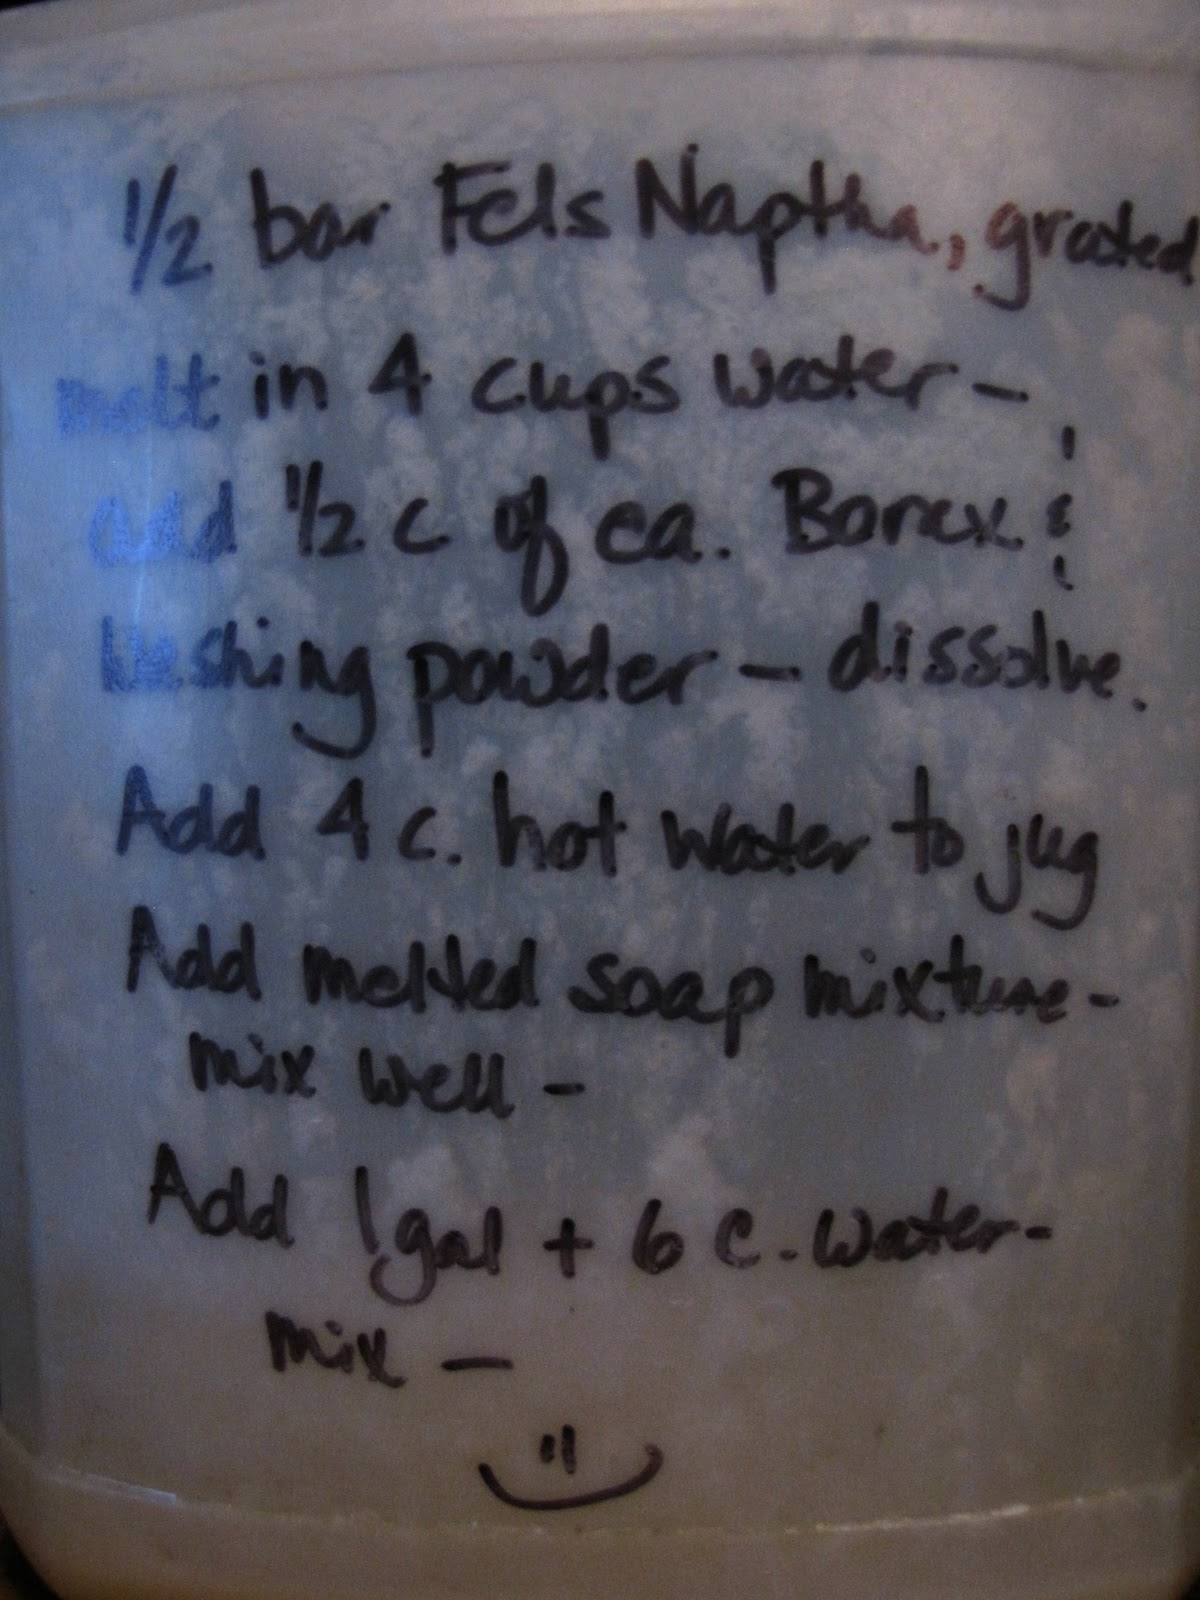 1/2 bar Fels Naptha, grated
melt in 4 cups water -
add 1/2 c of ea. Borax &
Washing powder - dissolve.
Add 4 c. hot water to jug
Add melted soap mixture -
mix well -
Add 1 gal + 6 c. water -
mix -